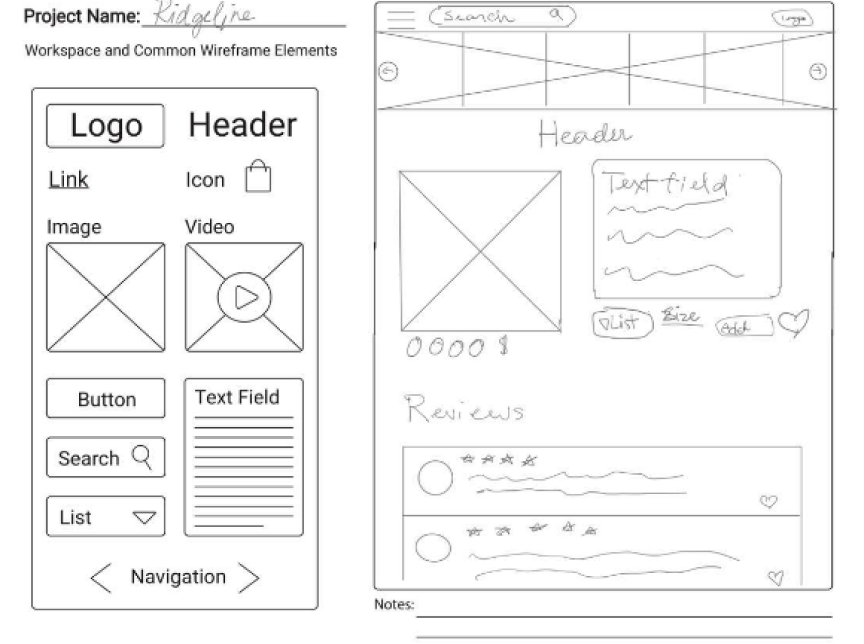 Project Name: Ridgeline
Workspace and Common Wireframe Elements
Logo
Header
Link
Icon
Image
Video
Button
Text Field
Search
List
Navigation
Search
Header
Text field
List
Size
Add
Reviews
Notes: